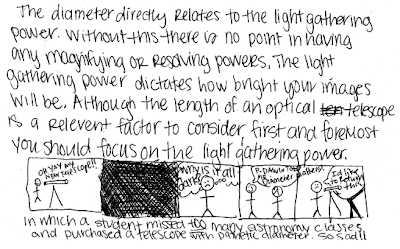 The diameter directly relates to the light gathering
power. Without this there is no point in having
any magnifying or resolving powers. The light
gathering power dictates how bright your images
will be. Although the length of an optical telescope
is a relevent factor to consider, first and foremost
you should focus on the light gathering power.
OH YAY MY
NEW TELESCOPE!!
Why is it all
dark?
diameter
I'd like
to return
this
In which a student missed too many astronomy classes
and purchased a telescope with pathetic diameter. So sad!!